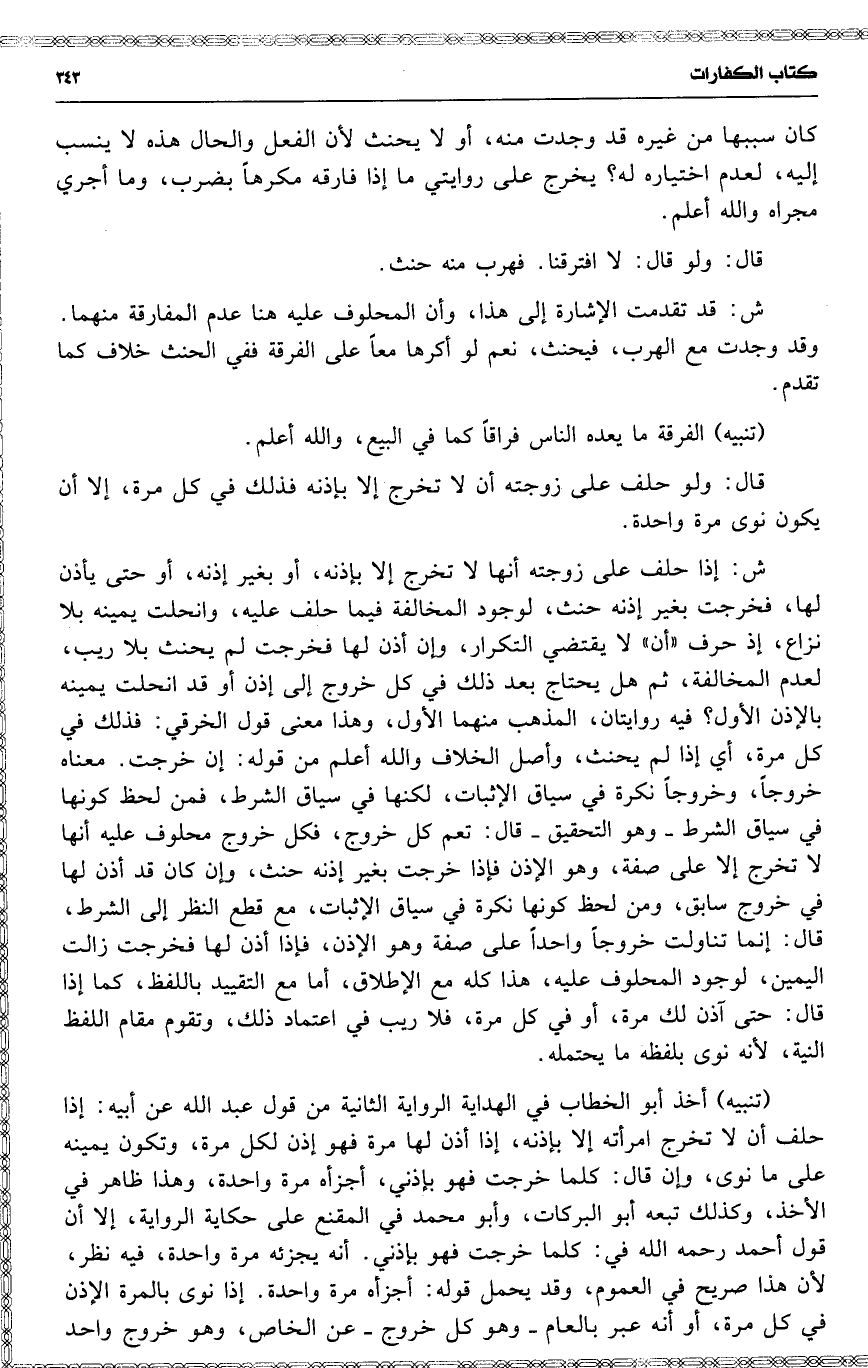 كتاب الكفارات ٣٤٣
كان سببها من غيره قد وجدت منه، أو لا يحنث لأن الفعل والحال هذه لا ينسب
إليه، لعدم اختياره له؟ يخرج على روايتي ما إذا فارقه مكرهاً بضرب، وما أجري
مجراه والله أعلم.
قال: ولو قال: لا افترقنا. فهرب منه حنث.
ش: قد تقدمت الإشارة إلى هذا، وأن المحلوف عليه هنا عدم المفارقة منهما.
وقد وجدت مع الهرب، فيحنث، نعم لو أكرها معاً على الفرقة ففي الحنث خلاف كما
تقدم.
(تنبيه) الفرقة ما يعده الناس فراقاً كما في البيع، والله أعلم.
قال: ولو حلف على زوجته أن لا تخرج إلا بإذنه فذلك في كل مرة، إلا أن
يكون نوى مرة واحدة.
ش: إذا حلف على زوجته أنها لا تخرج إلا بإذنه، أو بغير إذنه، أو حتى يأذن
لها، فخرجت بغير إذنه حنث، لوجود المخالفة فيما حلف عليه، وانحلت يمينه بلا
نزاع، إذ حرف «أن» لا يقتضي التكرار، وإن أذن لها فخرجت لم يحنث بلا ريب،
لعدم المخالفة، ثم هل يحتاج بعد ذلك في كل خروج إلى إذن أو قد انحلت يمينه
بالإذن الأول؟ فيه روايتان، المذهب منهما الأول، وهذا معنى قول الخرقي: فذلك في
كل مرة، أي إذا لم يحنث، وأصل الخلاف والله أعلم من قوله: إن خرجت. معناه
خروجاً، وخروجاً نكرة في سياق الإثبات، لكنها في سياق الشرط، فمن لحظ كونها
في سياق الشرط ـ وهو التحقيق ـ قال: تعم كل خروج، فكل خروج محلوف عليه أنها
لا تخرج إلا على صفة، وهو الإذن فإذا خرجت بغير إذنه حنث، وإن كان قد أذن لها
في خروج سابق، ومن لحظ كونها نكرة في سياق الإثبات، مع قطع النظر إلى الشرط،
قال: إنما تناولت خروجاً واحداً على صفة وهو الإذن، فإذا أذن لها فخرجت زالت
اليمين، لوجود المحلوف عليه، هذا كله مع الإطلاق، أما مع التقييد باللفظ، كما إذا
قال: حتى آذن لك مرة، أو في كل مرة، فلا ريب في اعتماد ذلك، وتقوم مقام اللفظ
النية، لأنه نوى بلفظه ما يحتمله.
(تنبيه) أخذ أبو الخطاب في الهداية الرواية الثانية من قول عبد الله عن أبيه: إذا
حلف أن لا تخرج امرأته إلا بإذنه، إذا أذن لها مرة فهو إذن لكل مرة، وتكون يمينه
على ما نوى، وإن قال: كلما خرجت فهو بإذني، أجزأه مرة واحدة، وهذا ظاهر في
الأخذ، وكذلك تبعه أبو البركات، وأبو محمد في المقنع على حكاية الرواية، إلا أن
قول أحمد رحمه الله في: كلما خرجت فهو بإذني. أنه يجزئه مرة واحدة، فيه نظر،
لأن هذا صريح في العموم، وقد يحمل قوله: أجزأه مرة واحدة. إذا نوى بالمرة الإذن
في كل مرة، أو أنه عبر بالعام ـ وهو كل خروج ـ عن الخاص، وهو خروج واحد